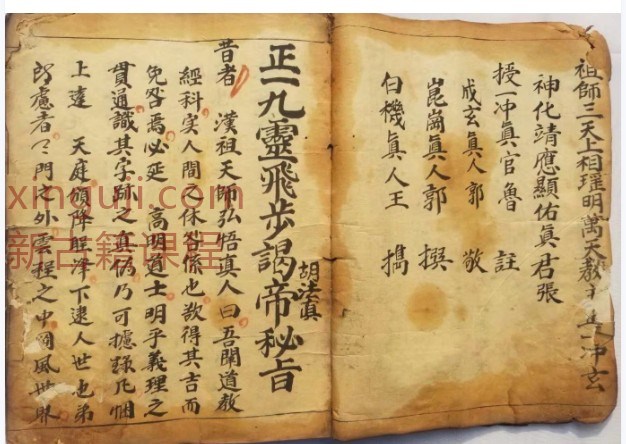 祖師三天上相璀明萬天教 一冲玄
神化靖應顯佑眞君張
授一冲眞官魯 註
成玄眞人郭 敬
崑崗眞人郭 撰
白機眞人王
正一九靈飛步謁帝秘旨
胡法眞
昔者 漢祖天師弘悟眞人曰吾聞道教
經科実人間之休咎係也欲得其吉而
免咎焉必延 高明道士明乎義理之
貫通識其字跡之真偽乃可據錄凡悃
上達 天庭頒降 下逮人世也弟
慮者 門之外雲程之中 風世界
xinguji.com
新古籍课程